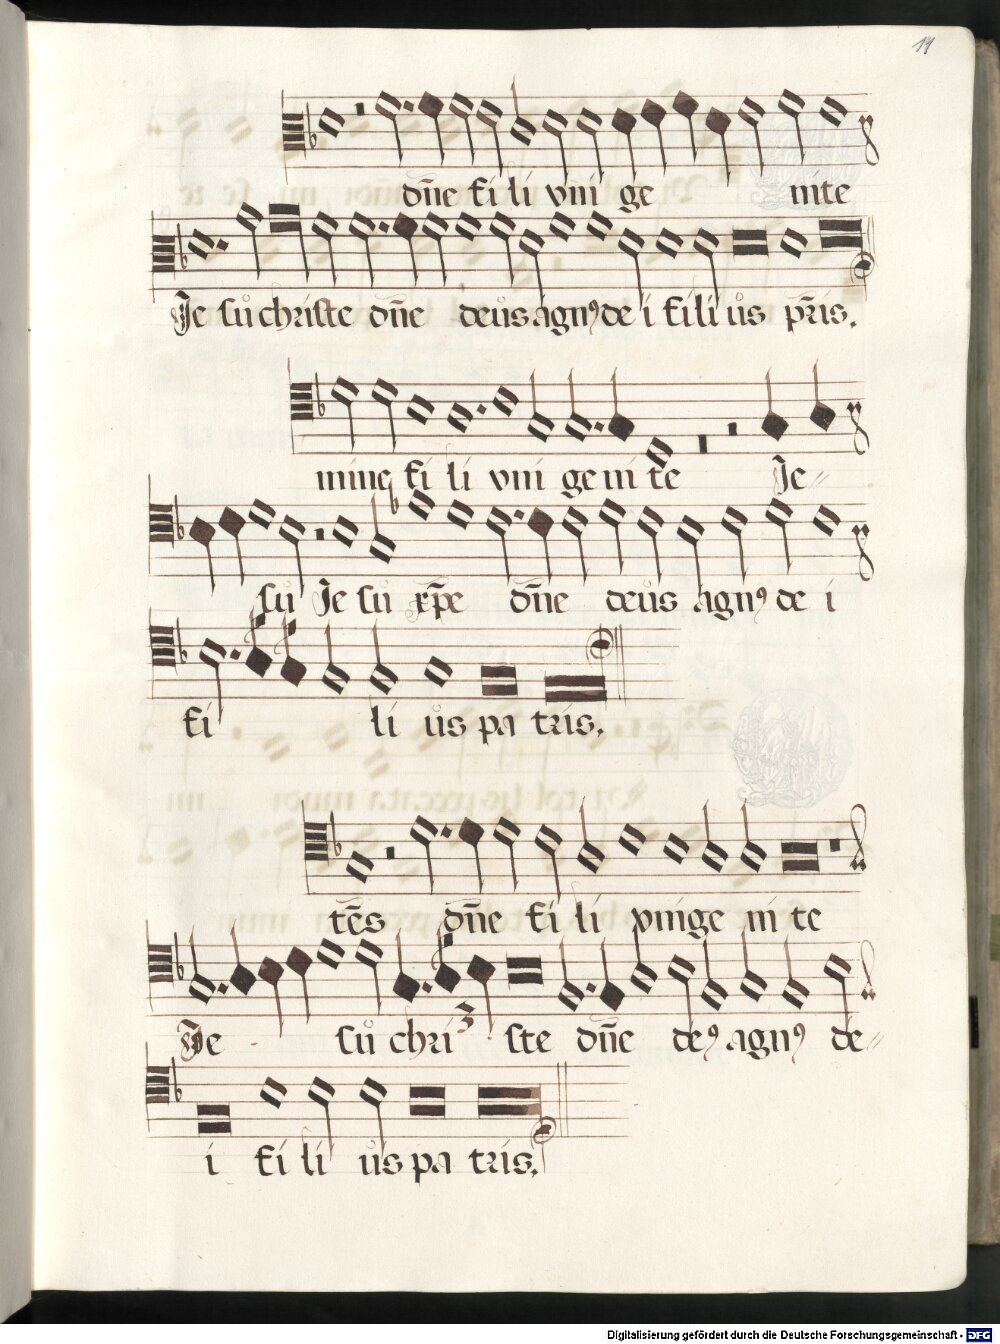 14
dn̄e fi li vni ge nite
Je sů christe dn̄e deůs agn⁹ de i fi li ůs pr̄is.
mine fi li vni ge ni te Je
sů Je sů xp̄e dn̄e deůs agn⁹ de i
fi li ůs pa tris.
tēs dn̄e fi li vnige ni te
Je sů chri ste dn̄e de⁹ agn⁹ de
i fi li ůs pa tris.
Digitalisierung gefördert durch die Deutsche Forschungsgemeinschaft - DFG